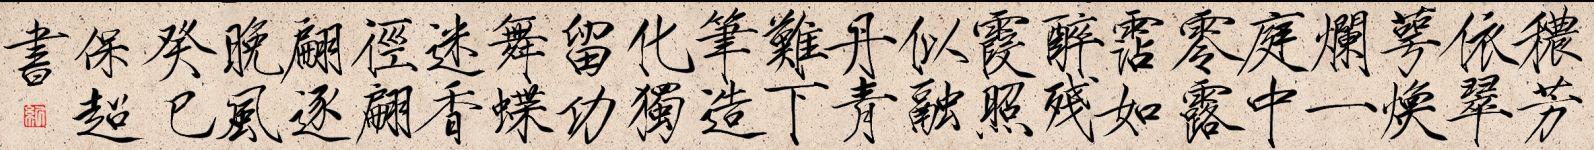 穠芳
依翠
萼煥
爛一
庭中
零露
霑如
醉殘
霞照
似融
丹青
難下
筆造
化獨
留功
舞蝶
迷香
徑翩
翩逐
晚風
癸巳
保超
書